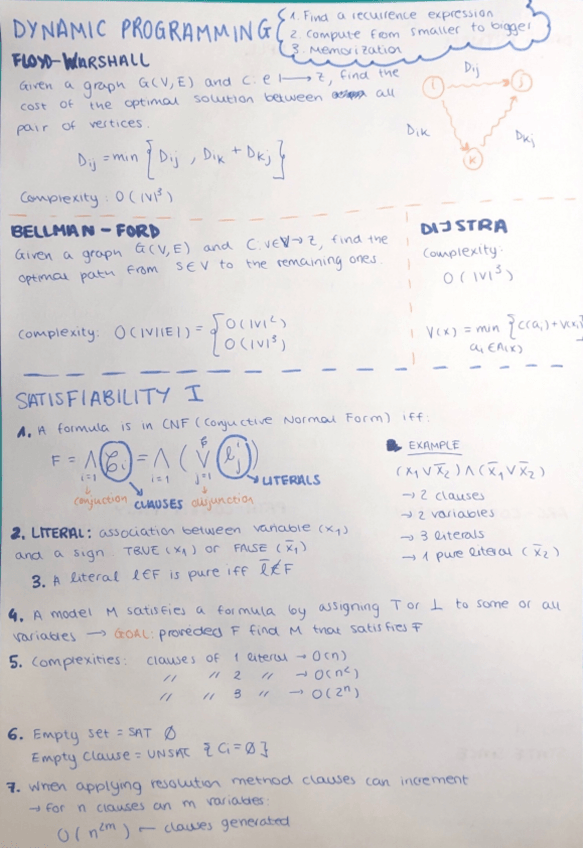 DYNAMIC PROGRAMMING
1. Find a recurrence expression
2. Compute from smaller to bigger
3. Memorization
FLOYD-WARSHALL
Given a graph G(V,E) and C: e ↦ Z, find the
cost of the optimal solution between all
pair of vertices.
Dij = min { Dij , Dik + Dkj }
Complexity: O(|V|³)
i
Dij
j
Dik
Dkj
k
BELLMAN-FORD
Given a graph G(V,E) and C: V∈V→Z, find the
optimal path from S∈V to the remaining ones.
Complexity: O(|V||E|) = { O(|V|²)
O(|V|³)
DIJSTRA
Complexity:
O(|V|³)
V(x) = min { C(ai) + V(x,
ai∈A(x)
SATISFIABILITY I
1. A formula is in CNF (Conjuctive Normal Form) iff:
F = ∧ Ci = ∧ ( ∨ lj )
i=1 i=1 j=1
LITERALS
conjuction CLAUSES disjunction
EXAMPLE
(x1 ∨ x̄2) ∧ (x̄1 ∨ x̄2)
→ 2 clauses
→ 2 variables
→ 3 literals
→ 1 pure literal (x̄2)
2. LITERAL: association between variable (x1)
and a sign TRUE (x1) or FALSE (x̄1)
3. A literal l∈F is pure iff l̄∉F
4. A model M satisfies a formula by assigning T or ⊥ to some or all
variables → GOAL: proveded F find M that satisfies F
5. Complexities: clauses of 1 literal → O(n)
// // 2 // → O(n²)
// // 3 // → O(2ⁿ)
6. Empty set = SAT ∅
Empty clause = UNSAT { Ci = ∅ }
7. When applying resolution method clauses can increment
→ for n clauses an m variables:
O(n²ᵐ) ← clauses generated